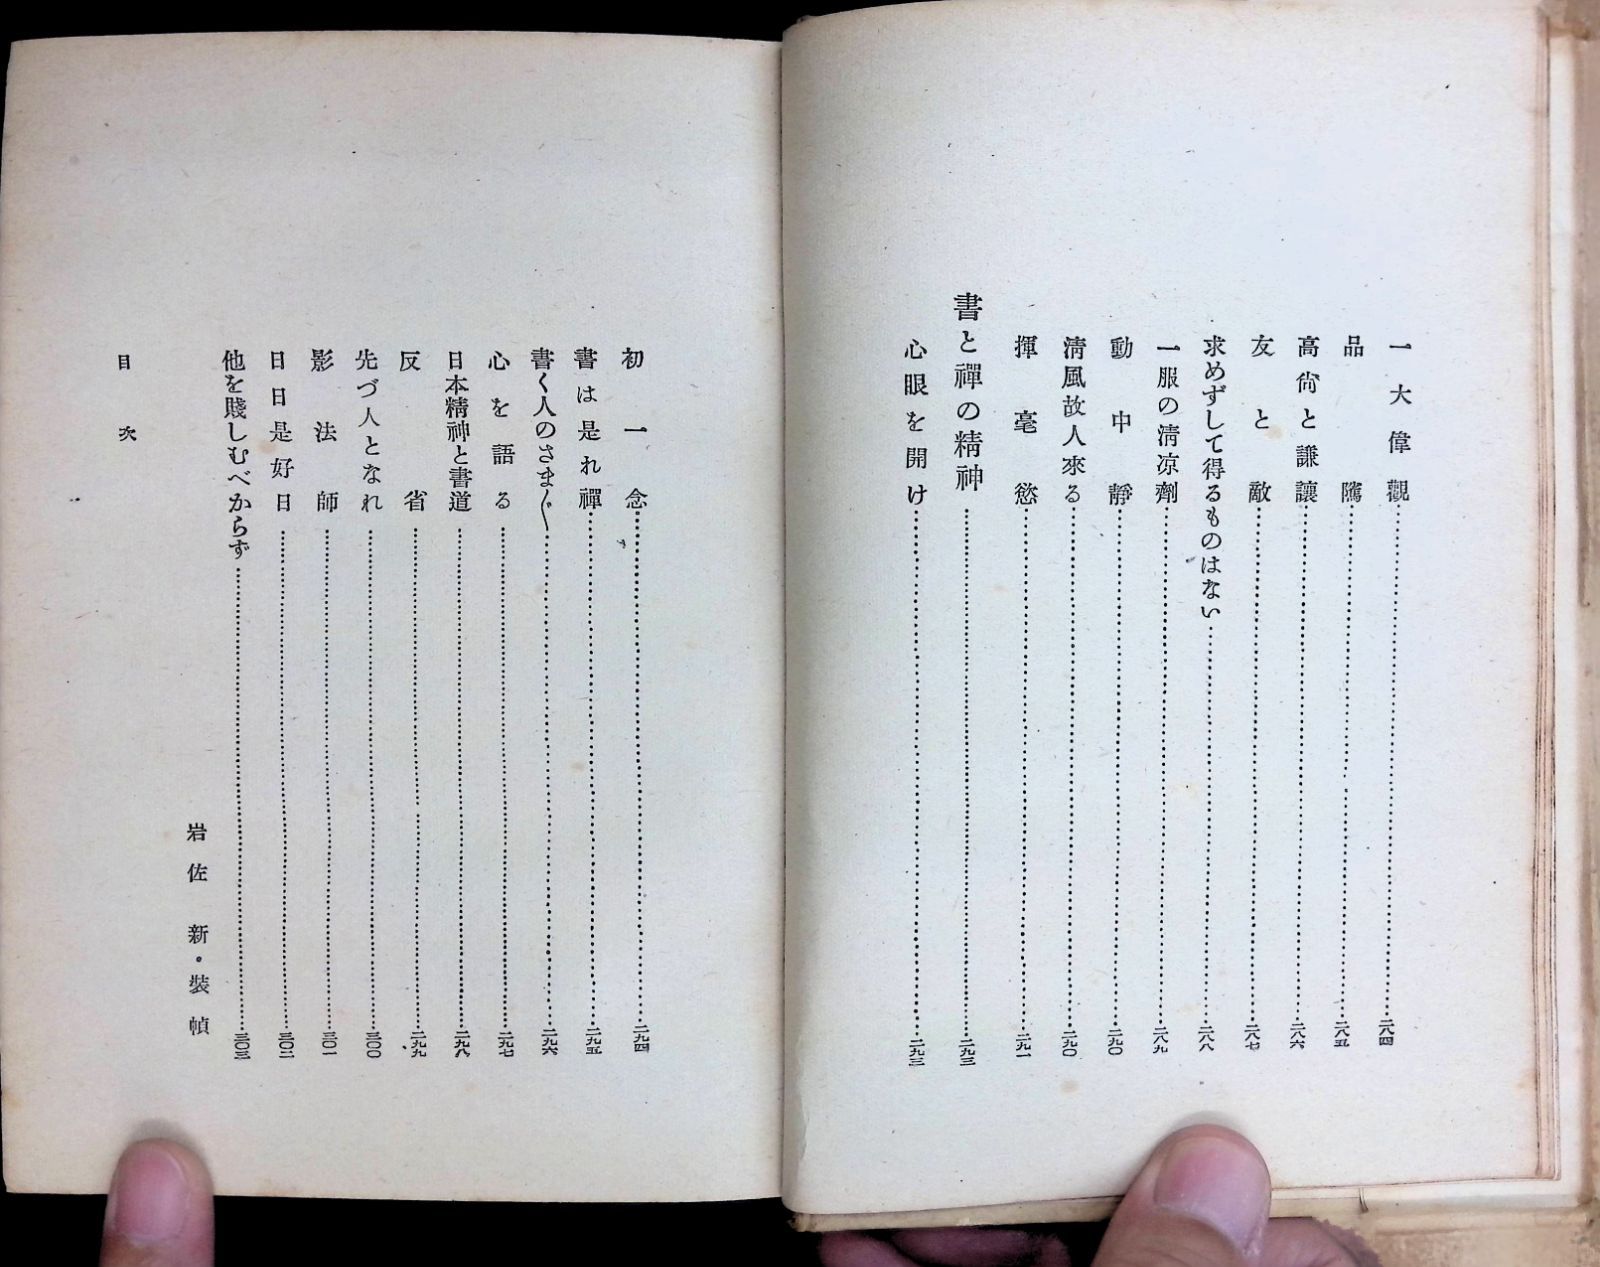 一大偉觀……二八四
品隲……二八五
高尙と謙讓……二八六
友と敵……二八七
求めずして得るものはない……二八八
一服の淸凉劑……二八九
動中靜……二九〇
淸風故人來る……二九〇
揮毫慾……二九一
書と禪の精神……二九三
心眼を開け……二九三
初一念……二九四
書は是れ禪……二九五
書く人のさま〴〵……二九六
心を語る……二九七
日本精神と書道……二九八
反省……二九九
先づ人となれ……三〇〇
影法師……三〇一
日日是好日……三〇二
他を賤しむべからず……三〇三
岩佐新・裝幀
目次